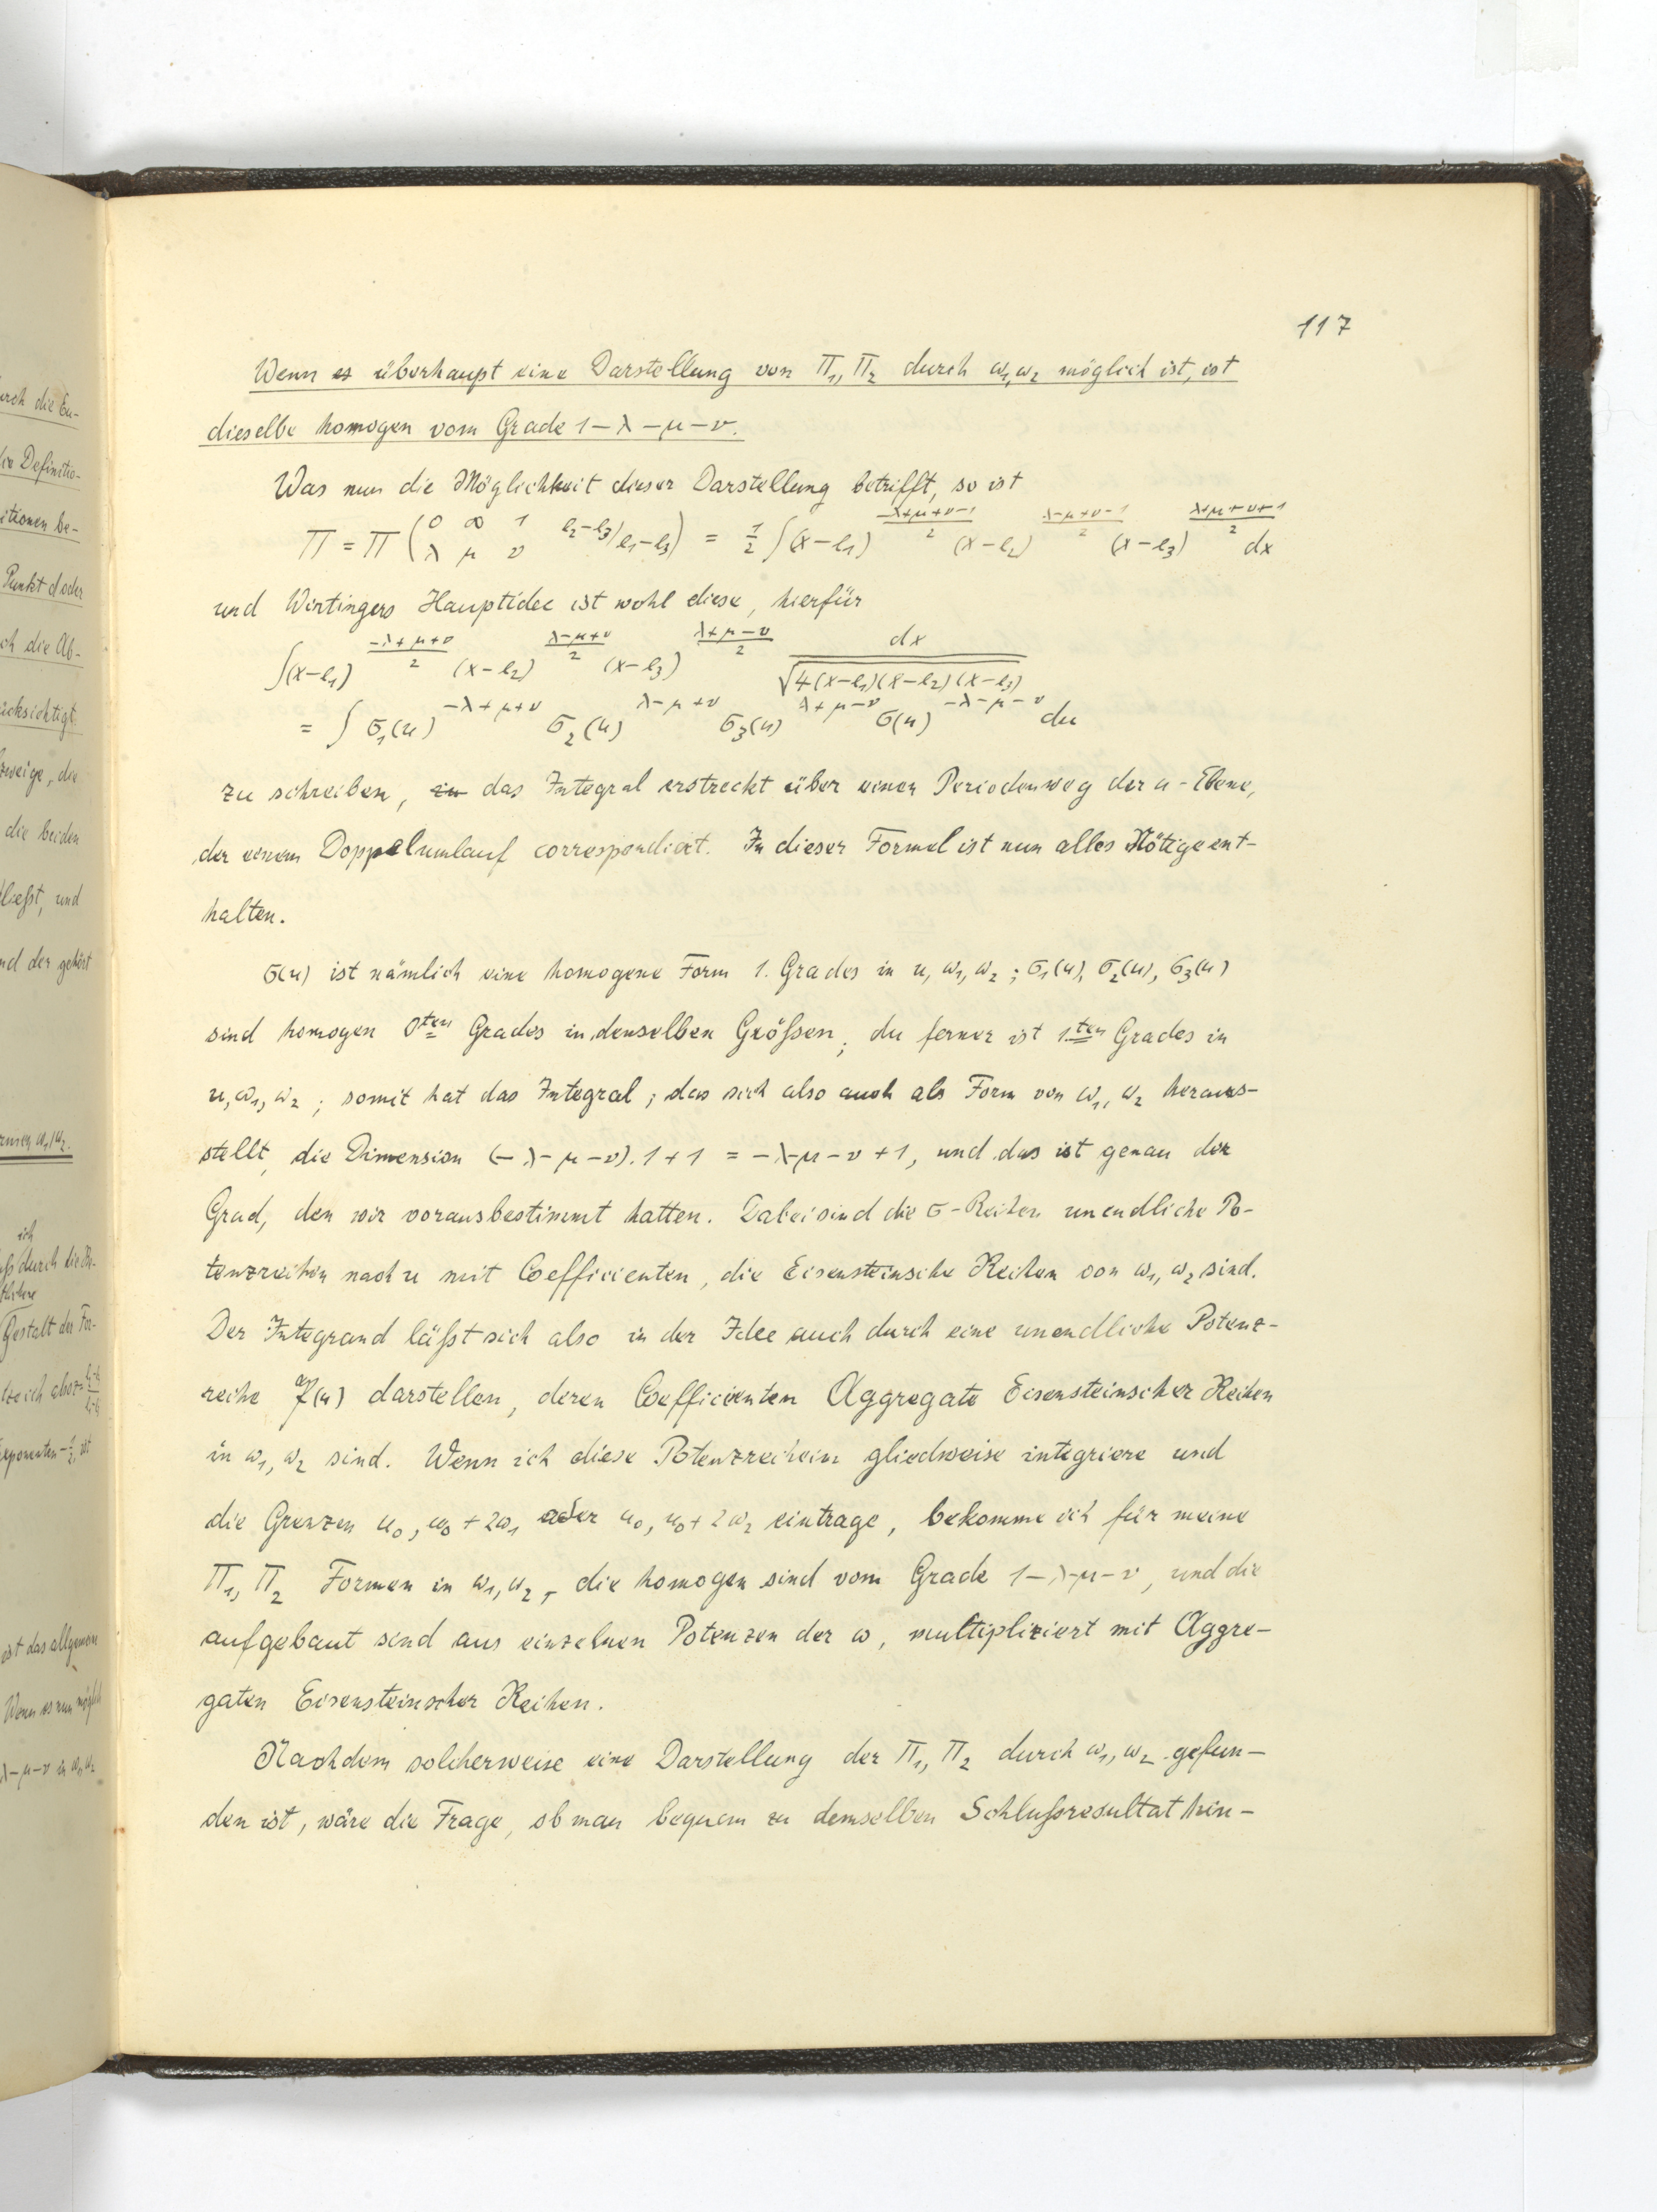 117
Wenn es überhaupt eine Darstellung von Π₁, Π₂ durch ω₁, ω₂ möglich ist, ist
dieselbe homogen vom Grade 1 − λ − μ − ν.
Was nun die Möglichkeit dieser Darstellung betrifft, so ist
Π = Π (0 ∞ 1 / λ μ ν  e₂−e₃/e₁−e₃) = ½ ∫(x−e₁)^{(−λ+μ+ν−1)/2} (x−e₂)^{(λ−μ+ν−1)/2} (x−e₃)^{(λ+μ−ν+1)/2} dx
und Wirtingers Hauptidee ist wohl diese, hierfür
∫(x−e₁)^{(−λ+μ+ν)/2} (x−e₂)^{(λ−μ+ν)/2} (x−e₃)^{(λ+μ−ν)/2} dx / √4(x−e₁)(x−e₂)(x−e₃)
= ∫ σ₁(u)^{−λ+μ+ν} σ₂(u)^{λ−μ+ν} σ₃(u)^{λ+μ−ν} σ(u)^{−λ−μ−ν} du
zu schreiben, das Integral erstreckt über einen Periodenweg der u-Ebene,
der einem Doppelumlauf correspondiert. In dieser Formel ist nun alles Nötige ent-
halten.
σ(u) ist nämlich eine homogene Form 1. Grades in u, ω₁, ω₂; σ₁(u), σ₂(u), σ₃(u)
sind homogen 0ten Grades in denselben Größen; du ferner ist 1.ten Grades in
u, ω₁, ω₂; somit hat das Integral; das sich also auch als Form von ω₁, ω₂ heraus-
stellt, die Dimension (−λ−μ−ν).1+1 = −λ−μ−ν+1, und das ist genau der
Grad, den wir vorausbestimmt hatten. Dabei sind die σ-Reihen unendliche Po-
tenzreihen nach u mit Coefficienten, die Eisensteinsche Reihen von ω₁, ω₂ sind.
Der Integrand läßt sich also in der Idee auch durch eine unendliche Potenz-
reihe (u) darstellen, deren Coefficienten Aggregate Eisensteinscher Reihen
in ω₁, ω₂ sind. Wenn ich diese Potenzreihein gliedweise integriere und
die Grenzen u₀, u₀ + 2ω₁ oder u₀, u₀ + 2ω₂ eintrage, bekomme ich für meine
Π₁, Π₂ Formen in ω₁, ω₂, die homogen sind vom Grade 1−λ−μ−ν, und die
aufgebaut sind aus einzelnen Potenzen der ω, multipliziert mit Aggre-
gaten Eisensteinscher Reihen.
Nachdem solcherweise eine Darstellung der Π₁, Π₂ durch ω₁, ω₂ gefun-
den ist, wäre die Frage, ob man bequem zu demselben Schlußresultat hin-